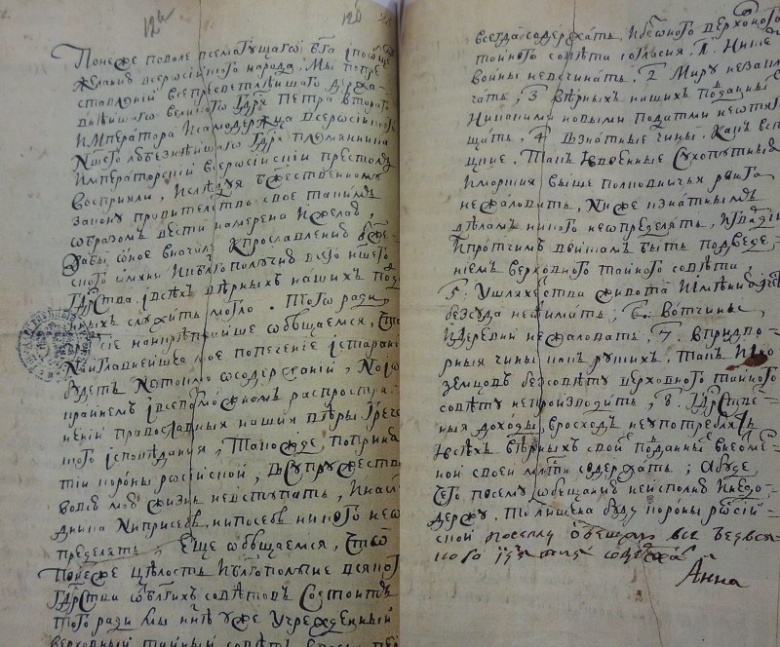 Понеже поволе всемогущаго бга iпообще
желанию всеросиiского народа: Мы попре
ставленiй всепресветлѣйшаго держа
внѣйшаго великого гдря Петра второго
императора исамодержца всеросиiского
ншего любезнѣйшаго гдря племянника
императорскиi всеросиiскиi престолъ
восприяли, iслѣдуя бжественному
закону правителство свое такимъ
ѡбразомъ вести намерена ижелаю,
дабы ѡное вначалѣ кпрославлению бже
ского имяни икблгополучию всего ншего
гдрства iвсѣхъ вѣрныхъ нашихъ подда
нныхъ служить могло. Того ради
наикрепчайше ѡбѣщаемся, что
наиглавнѣйшее мое попечение iстарание
будетъ нетокмо ѡсодержанiй, но i
крайнемъ iвсевозможномъ распростра
ненiй православныя нашия вѣры грече
ского iсповѣдания, такожде поприня
тiи короны росиiской, всупружество
вовсю мою жизнь невступать, инаслѣ
дника ниприсебѣ нипосебѣ никого неѡ
пределять, Еще ѡбѣщаемся, что
понеже целость иблгополучие всякого
гдрства ѡтблгихъ совѣтовъ состоитъ
того ради мы ннѣ уже учрежденный
верховный тайный совѣтъ
всегда содержать, ибезоного верховного
тайного совѣта согласия. 1. Ни
войны невсчинать. 2 Миру незаклю
чать, 3 вѣрныхъ нашихъ подданныхъ
никакими новыми податми неотяго
щать, 4 взнатные чины, какъ вста
цкие, такъ ивоенные сухопутные
иморския выше полковничья ранга
нежаловать, ниже кзнатнымъ
дѣламъ никого неѡпределять, игвардiи
ипротчимъ войскамъ быть подведе
ниемъ верховного тайного совѣта
5. Ушляхетства живота иимѣния
безсуда неѡтимать; 6. вотчины
идеревни нежаловать, 7. впридво
рныя чины какъ руских, такъ ино
земцовъ безсовѣту верховного тайного
совѣту непроизводить, 8. гдрстве
ныя доходы врасходъ неупотреблять
iвсѣхъ вѣрныхъ своiхъ подданныхъ внеотме
ной своей млсти содержать; абуде
чего посему ѡбѣщанию неисполню инедо
держу, то лишена буду короны росиi
ской
посему обещаю все безвся
кого
Анна